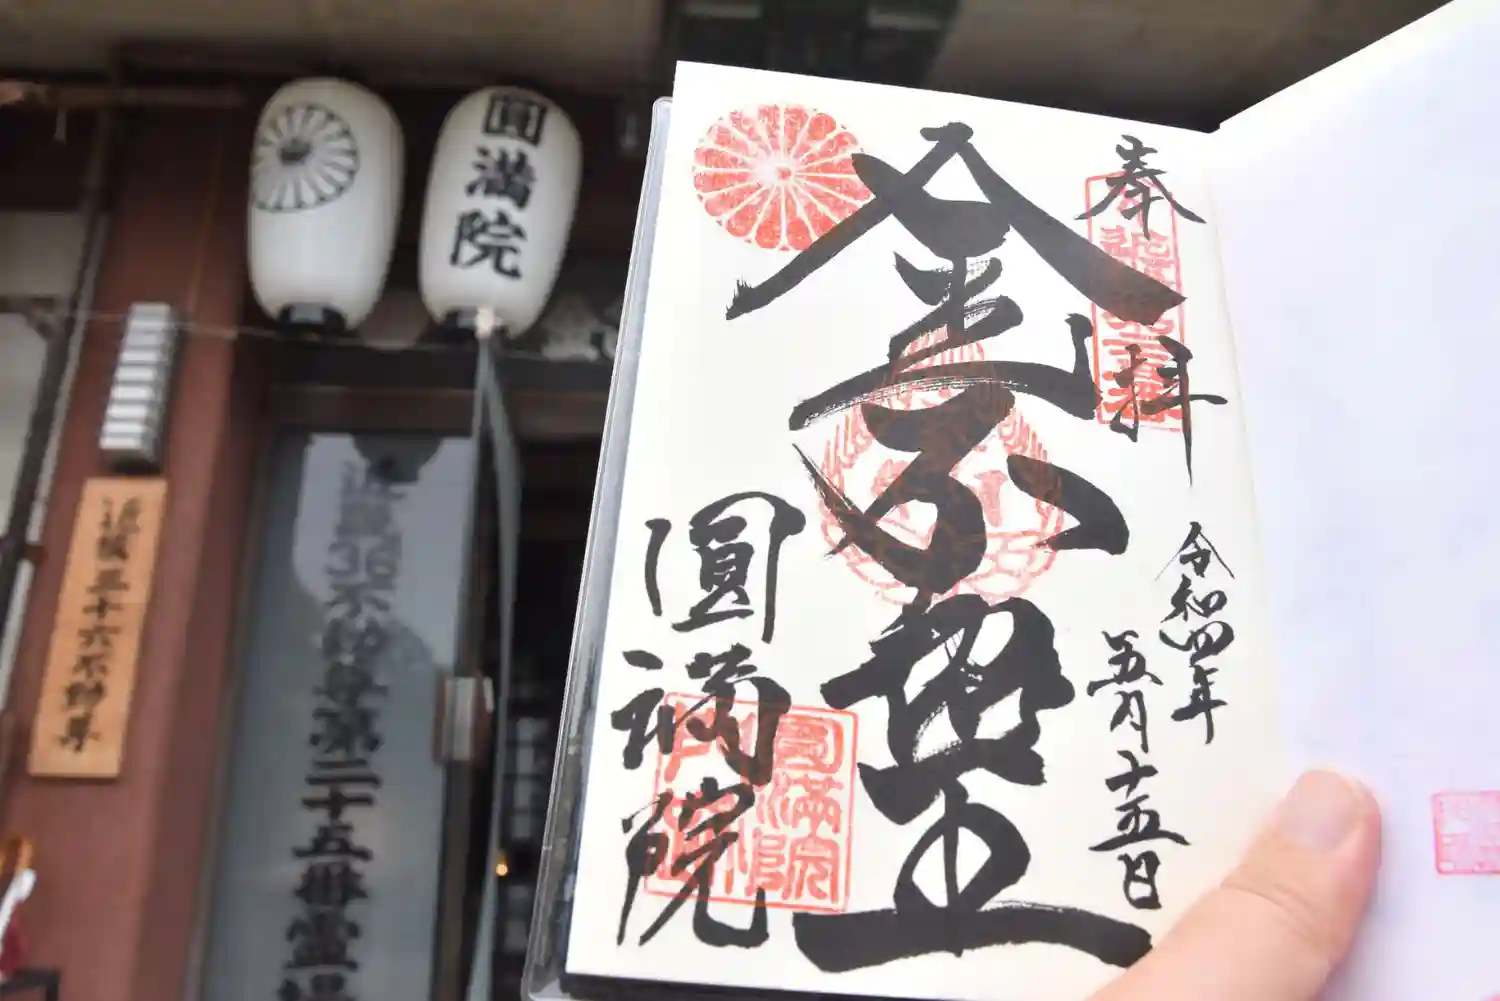 圓満院
近畿三十六不動尊
近畿36不動尊第二十五番霊場
奉拝
令和四年
五月十五日
金不
圓満院
圓満院